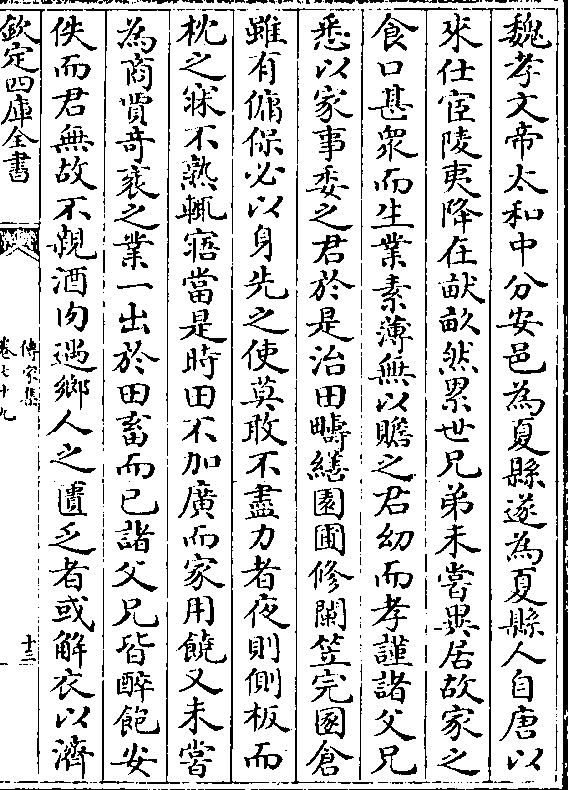 魏孝文帝太和中分安邑為夏縣遂為夏縣人自唐以
來仕宦陵夷降在畎畝然累世兄弟未嘗異居故家之
食口甚衆而生業素薄無以贍之君幼而孝謹諸父兄
悉以家事委之君於是治田疇繕園圃修闌笠完囷倉
雖有傭保必以身先之使莫敢不盡力者夜則側板而
枕之寐不熟輒寤當是時田不加廣而家用饒又未嘗
為商賈竒衺之業一出於田畜而已諸父兄皆醉飽安
佚而君無故不親酒肉遇鄉人之匱乏者或解衣以濟
欽定四庫全書
傳家集
卷七十九
十三